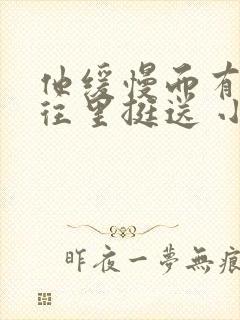 他缓慢而有
往里挺送 小
昨夜一夢無痕